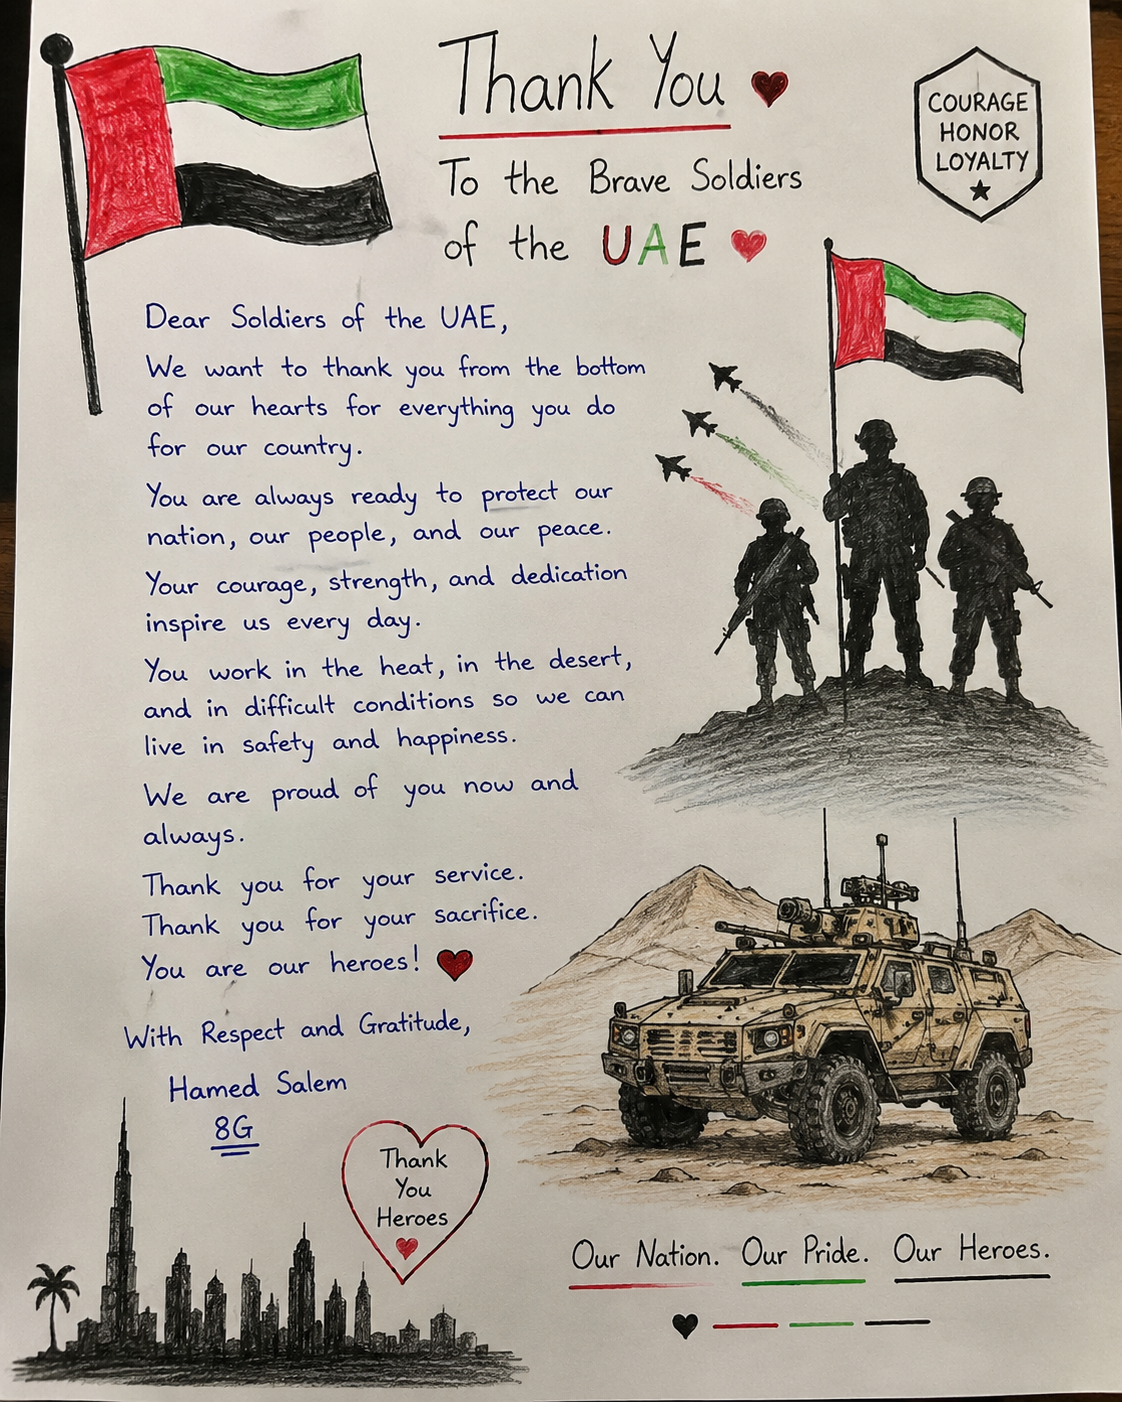 Thank You
To the Brave Soldiers
of the UAE
COURAGE
HONOR
LOYALTY
Dear Soldiers of the UAE,
We want to thank you from the bottom
of our hearts for everything you do
for our country.
You are always ready to protect our
nation, our people, and our peace.
Your courage, strength, and dedication
inspire us every day.
You work in the heat, in the desert,
and in difficult conditions so we can
live in safety and happiness.
We are proud of you now and
always.
Thank you for your service.
Thank you for your sacrifice.
You are our heroes!
With Respect and Gratitude,
Hamed Salem
8G
Thank
You
Heroes
Our Nation. Our Pride. Our Heroes.